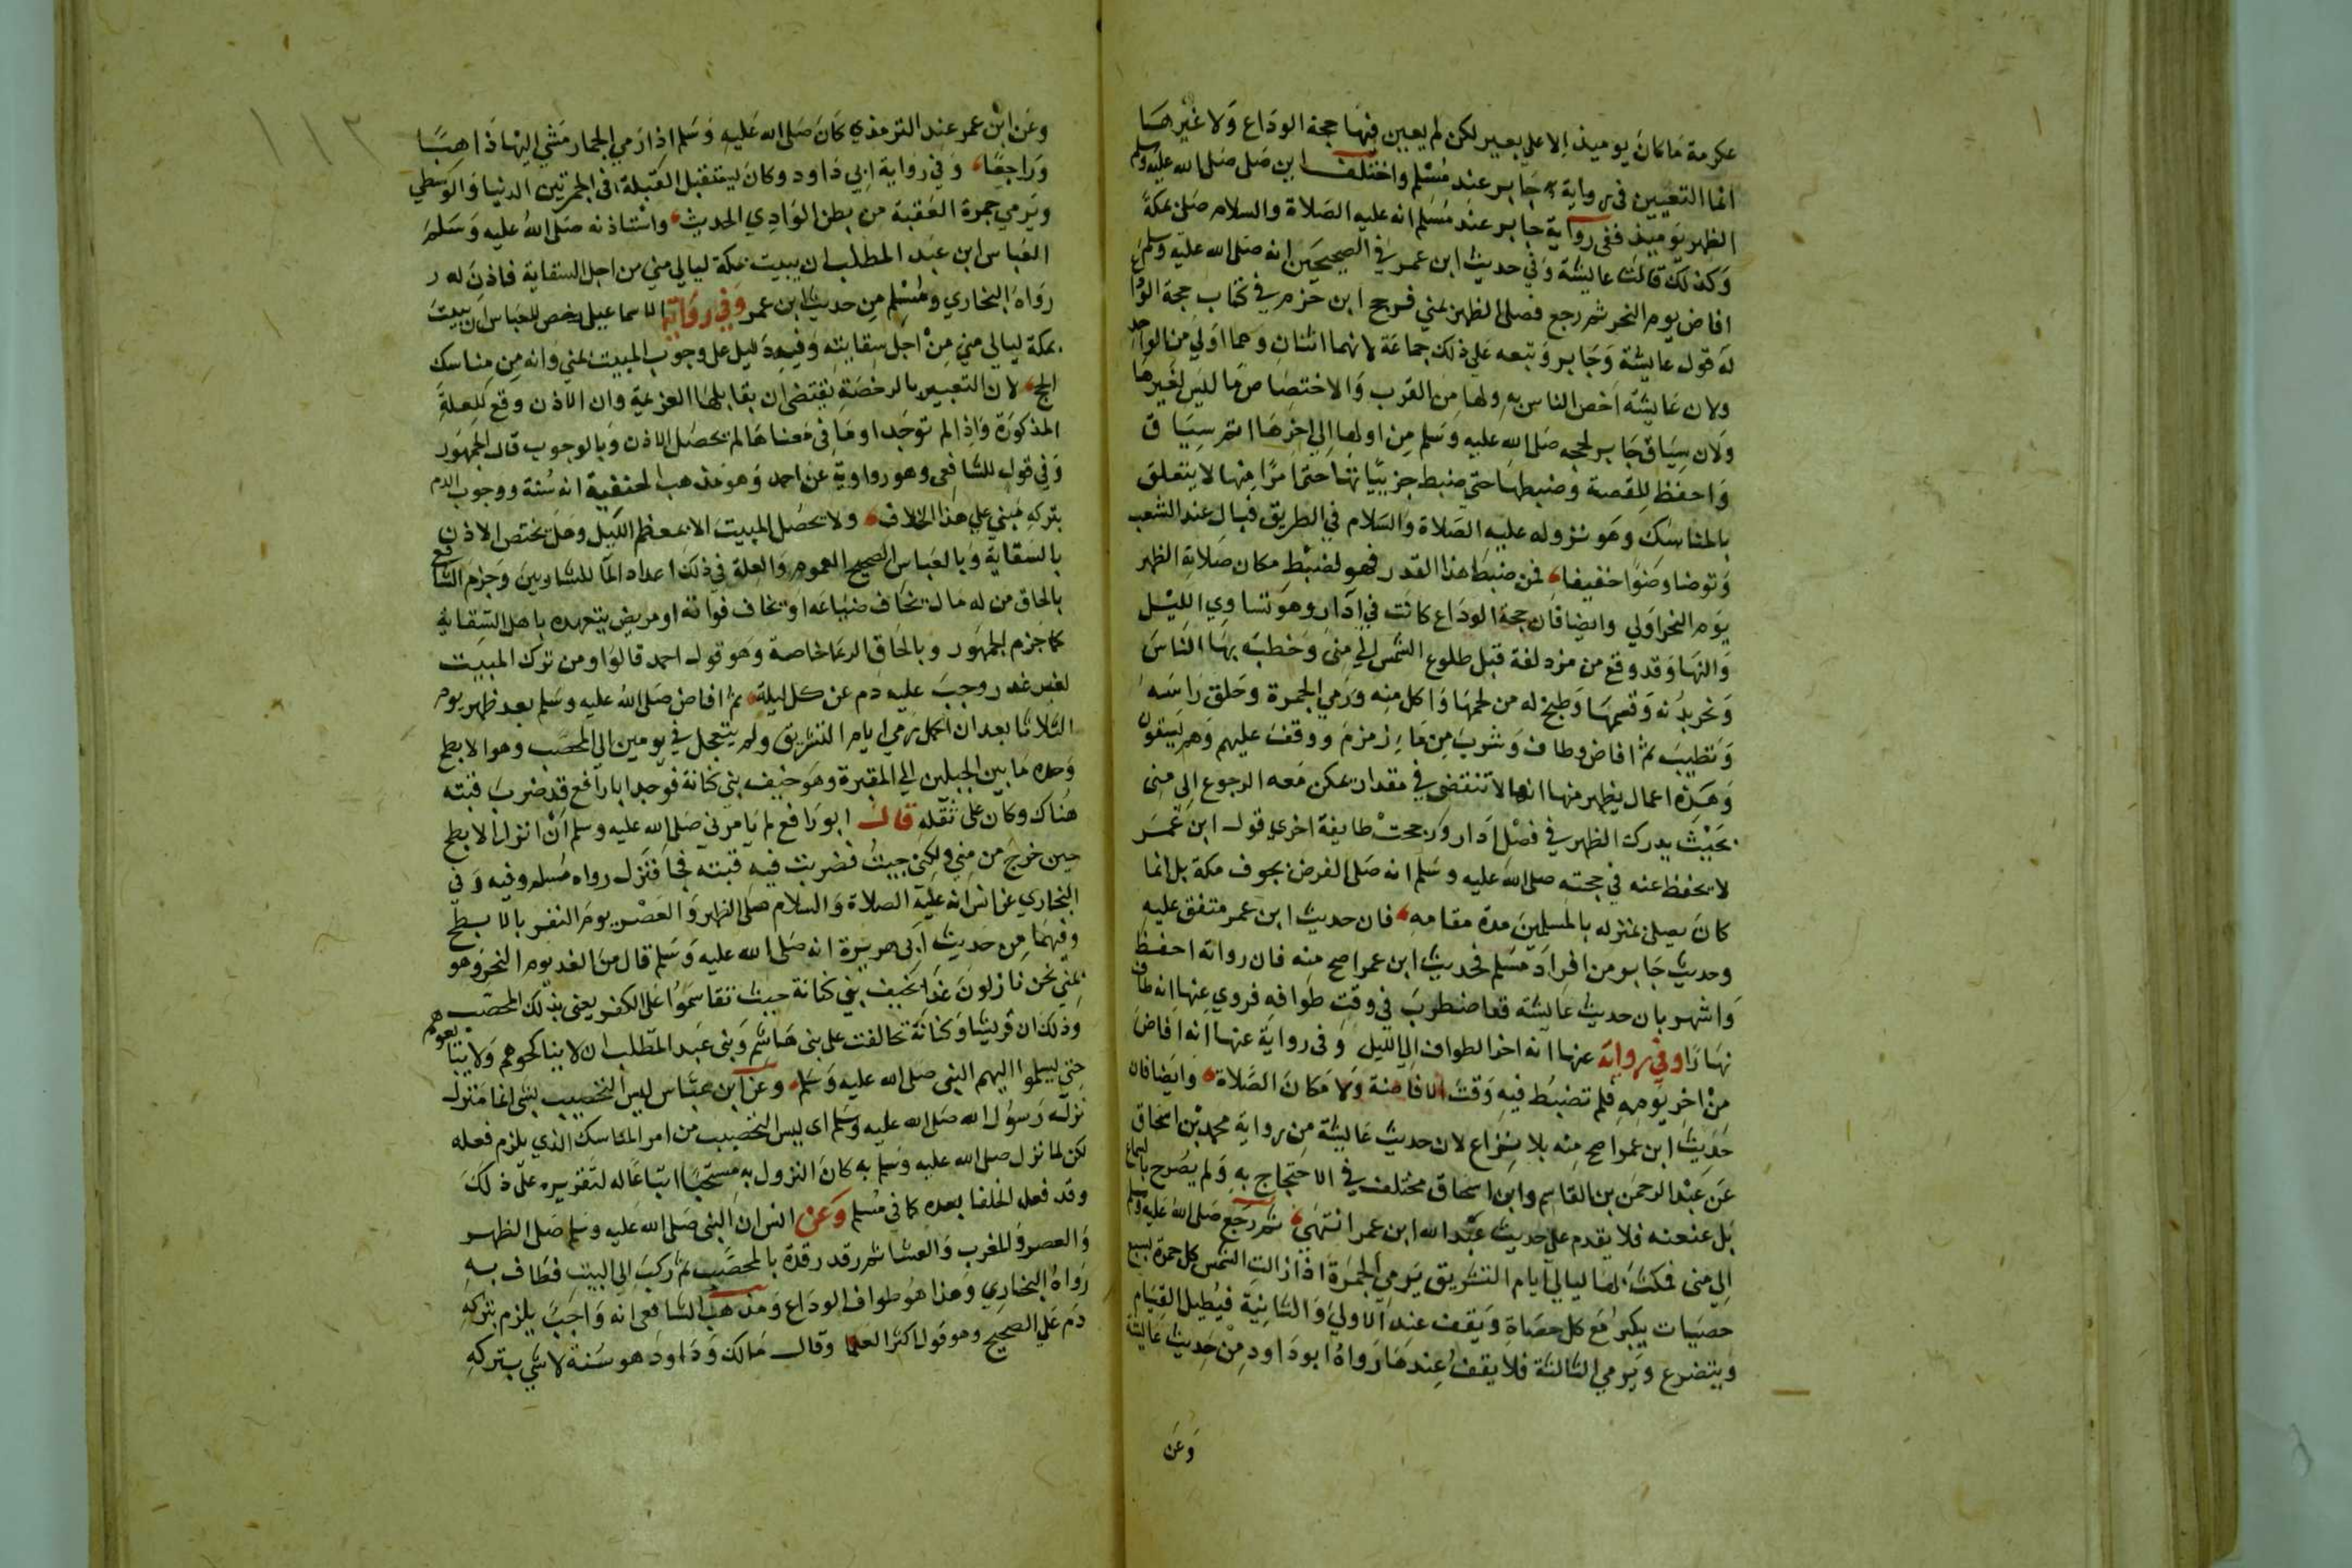 عكرمة ما كان يوميذ الا علي بعير لكن لم يعين فيها حجة الوداع ولا غيرها
انما التعيين في رواية جابر عند مسلم واختلف اين صلي صلي الله عليه وسلم
الظهر يوميذ ففي رواية جابر عند مسلم انه عليه الصلاة والسلام صلي بمكة
وكذلك قالت عايشة وفي حديث ابن عمر في الصحيحين انه صلي الله عليه وسلم
افاض يوم النحر ثم رجع فصلي الظهر بمني فرجح ابن حزم في كتاب حجة الوداع
له قول عايشة وجابر وتبعه علي ذلك جماعة لانهما اثنان وهما اولي من الواحد
ولان عايشة اخص الناس به ولها من القرب والاختصاص ما ليس لغيرها
ولان سياق جابر لحجه صلي الله عليه وسلم من اولها الي اخرها اتم سياق
واحفظ للقصة وضبطها حتي ضبط جزيياتها حتي امرا منها لا يتعلق
بالمناسك وهو نزوله عليه الصلاة والسلام في الطريق فبال عند الشعب
وتوضا وضوا خفيفا فمن ضبط هذا القدر فهو لضبط مكان صلاته الظهر
يوم النحر اولي وايضا فان حجة الوداع كانت في اذار وهو تساوي الليل
والنهار وقد دفع من مزدلفة قبل طلوع الشمس الي مني وخطب بها الناس
ونحر بدنه وقسمها وطبخ له من لحمها واكل منه ورمي الجمرة وحلق راسه
وتطيب ثم افاض وطاف وشرب من ماء زمزم ووقف عليهم وهم يسقون
وهذه اعمال يظهر منها انها لا تنقضي في مقدار يمكن معه الرجوع الي مني
بحيث يدرك الظهر في فصل اذار ورجحت طايفة اخري قول ابن عمر
لا يحفظ عنه في حجته صلي الله عليه وسلم انه صلي الفرض بجوف مكة بل انما
كان يصلي بمنزله بالمسلمين مدة مقامه فان حديث ابن عمر متفق عليه
وحديث جابر من افراد مسلم فحديث ابن عمر اصح منه فان رواته احفظ
واشهر بان حديث عايشة قد اضطرب في وقت طوافه فروي عنها انه طاف
نهارا وفي رواية عنها انه اخر الطواف الي الليل وفي رواية عنها انه افاض
من اخر يومه فلم تضبط فيه وقت الافاضة ولا مكان الصلاة وايضا فان
حديث ابن عمر اصح منه بلا نزاع لان حديث عايشة من رواية محمد بن اسحاق
عن عبد الرحمن بن القاسم وابن اسحاق مختلف في الاحتجاج به ولم يصرح بالسماع
بل عنعنه فلا يقدم علي حديث عبد الله ابن عمر انتهي ثم رجع صلي الله عليه وسلم
الي مني فمكث بها ليالي ايام التشريق يرمي الجمرة اذا زالت الشمس كل جمرة بسبع
حصيات يكبر مع كل حصاة ويقف عند الاولي والثانية فيطيل القيام
ويتضرع ويرمي الثالثة فلا يقف عندها رواه ابو داود من حديث عايشة
وعن
١١٢
وعن ابن عمر عند الترمذي كان صلي الله عليه وسلم اذا رمي الجمار مشي اليها ذاهبا
وراجعا وفي رواية ابي داود وكان يستقبل القبلة في الجمرتين الدنيا والوسطي
ويرمي جمرة العقبة من بطن الوادي الحديث واستاذنه صلي الله عليه وسلم
العباس ابن عبد المطلب ان يبيت بمكة ليالي مني من اجل السقاية فاذن له ر
رواه البخاري ومسلم من حديث ابن عمر وفي رواية الاسماعيلي رخص للعباس ان يبيت
بمكة ليالي مني من اجل سقايته وفيه دليل علي وجوب المبيت بمني وانه من مناسك
الحج لان التعبير بالرخصة يقتضي ان يقابلها العزيمة وان الاذن وقع للعلة
المذكورة واذا لم توجد او ما في معناها لم يحصل الاذن وبالوجوب قال الجمهور
وفي قول للشافعي وهو رواية عن احمد وهو مذهب الحنفية انه سنة ووجوب الدم
بتركه مبني علي هذا الخلاف ولا يحصل المبيت الا بمعظم الليل وهل يختص الاذن
بالسقاية وبالعباس الصحيح العموم والعلة في ذلك اعداد الما للشاربين وجزم الشافعي
بالحاق من له مال يخاف ضياعه او يخاف فواته او مريض يتعهده باهل السقاية
كما جزم الجمهور وبالحاق الرعا خاصة وهو قول احمد قالوا ومن ترك المبيت
لغير عذر وجب عليه دم عن كل ليلة ثم افاض صلي الله عليه وسلم بعد ظهر يوم
الثلاثا بعد ان اكمل رمي ايام التشريق ولم يتعجل في يومين الي المحصب وهو الابطح
وحده ما بين الجبلين الي المقبرة وهو خيف بني كنانة فوجد ابا رافع قد ضرب قبته
هناك وكان علي ثقله قال ابو رافع لم يامرني صلي الله عليه وسلم ان انزل الابطح
حين خرج من مني ولكني جيت فضربت فيه قبته فجا فنزل رواه مسلم وفيه وفي
البخاري عن انس انه عليه الصلاة والسلام صلي الظهر والعصر يوم النفر بالابطح
وفيهما من حديث ابي هريرة انه صلي الله عليه وسلم قال من الغد يوم النحر وهو
بمني نحن نازلون غدا بخيف بني كنانة حيث تقاسموا علي الكفر يعني بذلك المحصب
وذلك ان قريشا وكنانة تحالفت علي بني هاشم وبني عبد المطلب ان لا يناكحوهم ولا يبايعوهم
حتي يسلموا اليهم النبي صلي الله عليه وسلم وعن ابن عباس ليس التحصيب بشي انما منزل
نزله رسول الله صلي الله عليه وسلم اي ليس التحصيب من امر المناسك الذي يلزم فعله
لكن لما نزل صلي الله عليه وسلم به كان النزول به مستحبا اتباعا له لتقريره علي ذلك
وقد فعله الخلفا بعده كما في مسلم وعن انس ان النبي صلي الله عليه وسلم صلي الظهر
والعصر والمغرب والعشا ثم رقد رقدة بالمحصب ثم ركب الي البيت فطاف به
رواه البخاري وهذا هو طواف الوداع ومذهب الشافعي انه واجب يلزم بتركه
دم علي الصحيح وهو قول اكثر العلما وقال مالك وداود هو سنة لا شي بتركه